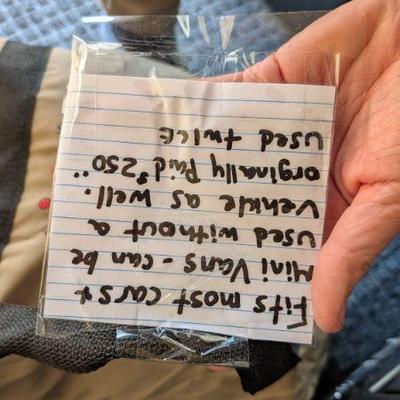 Fits most cars +
Mini Vans - can be
used without a
Vehicle as well.
orginally Paid $250"
used twice